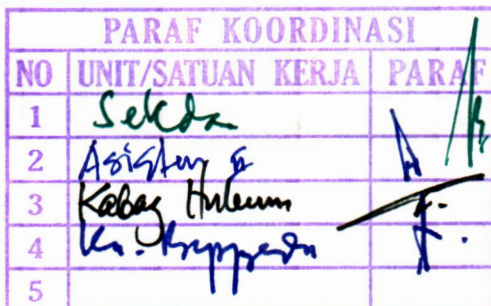 PARAF KOORDINASI
NO UNIT/SATUAN KERJA PARAF
1 Sekda
2 Asisten
3 Kabag Hukum
4 Ka. Bappeda
5